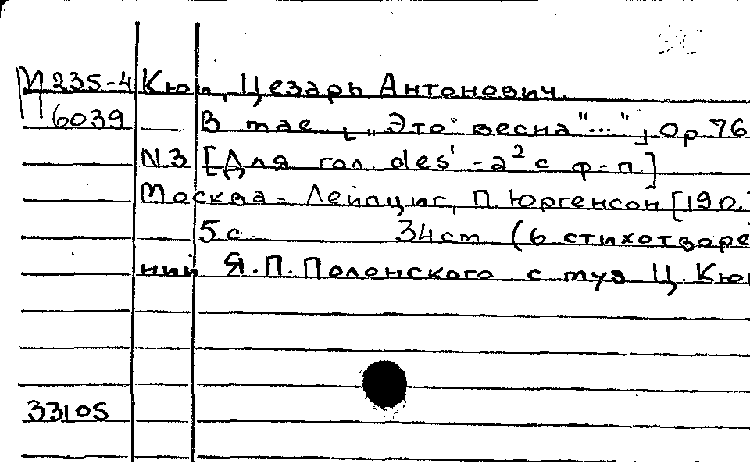 М 235-4 Кюи, Цезарь Антонович.
П 6039 В мае [„Это весна"..."] Op 76
N.3 [Для гол. des¹-a² с ф-п.]
Москва-Лейпциг, П. Юргенсон [190.
5 с 34 cm (6 стихотворе
ний Я.П. Полонского с муз Ц. Кюи
33105